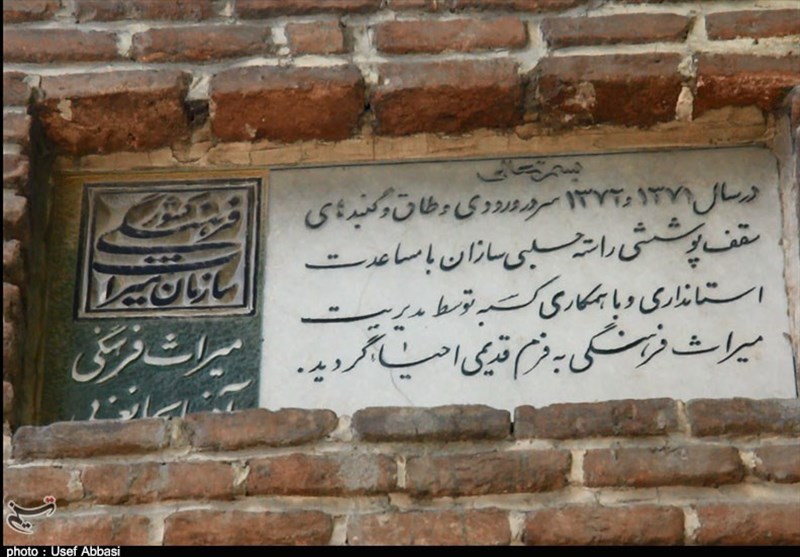 بسمه تعالی
در سال ۱۳۷۱ و ۱۳۷۲ سردر ورودی و طاق و گنبدهای
سقف پوششی راسته حلبی سازان با مساعدت
استانداری و با همکاری کسبه توسط مدیریت
میراث فرهنگی به فرم قدیمی احیاء گردید.
سازمان میراث
فرهنگی کشور
میراث فرهنگی
آذربایجانغربی
تسنیم
photo : Usef Abbasi